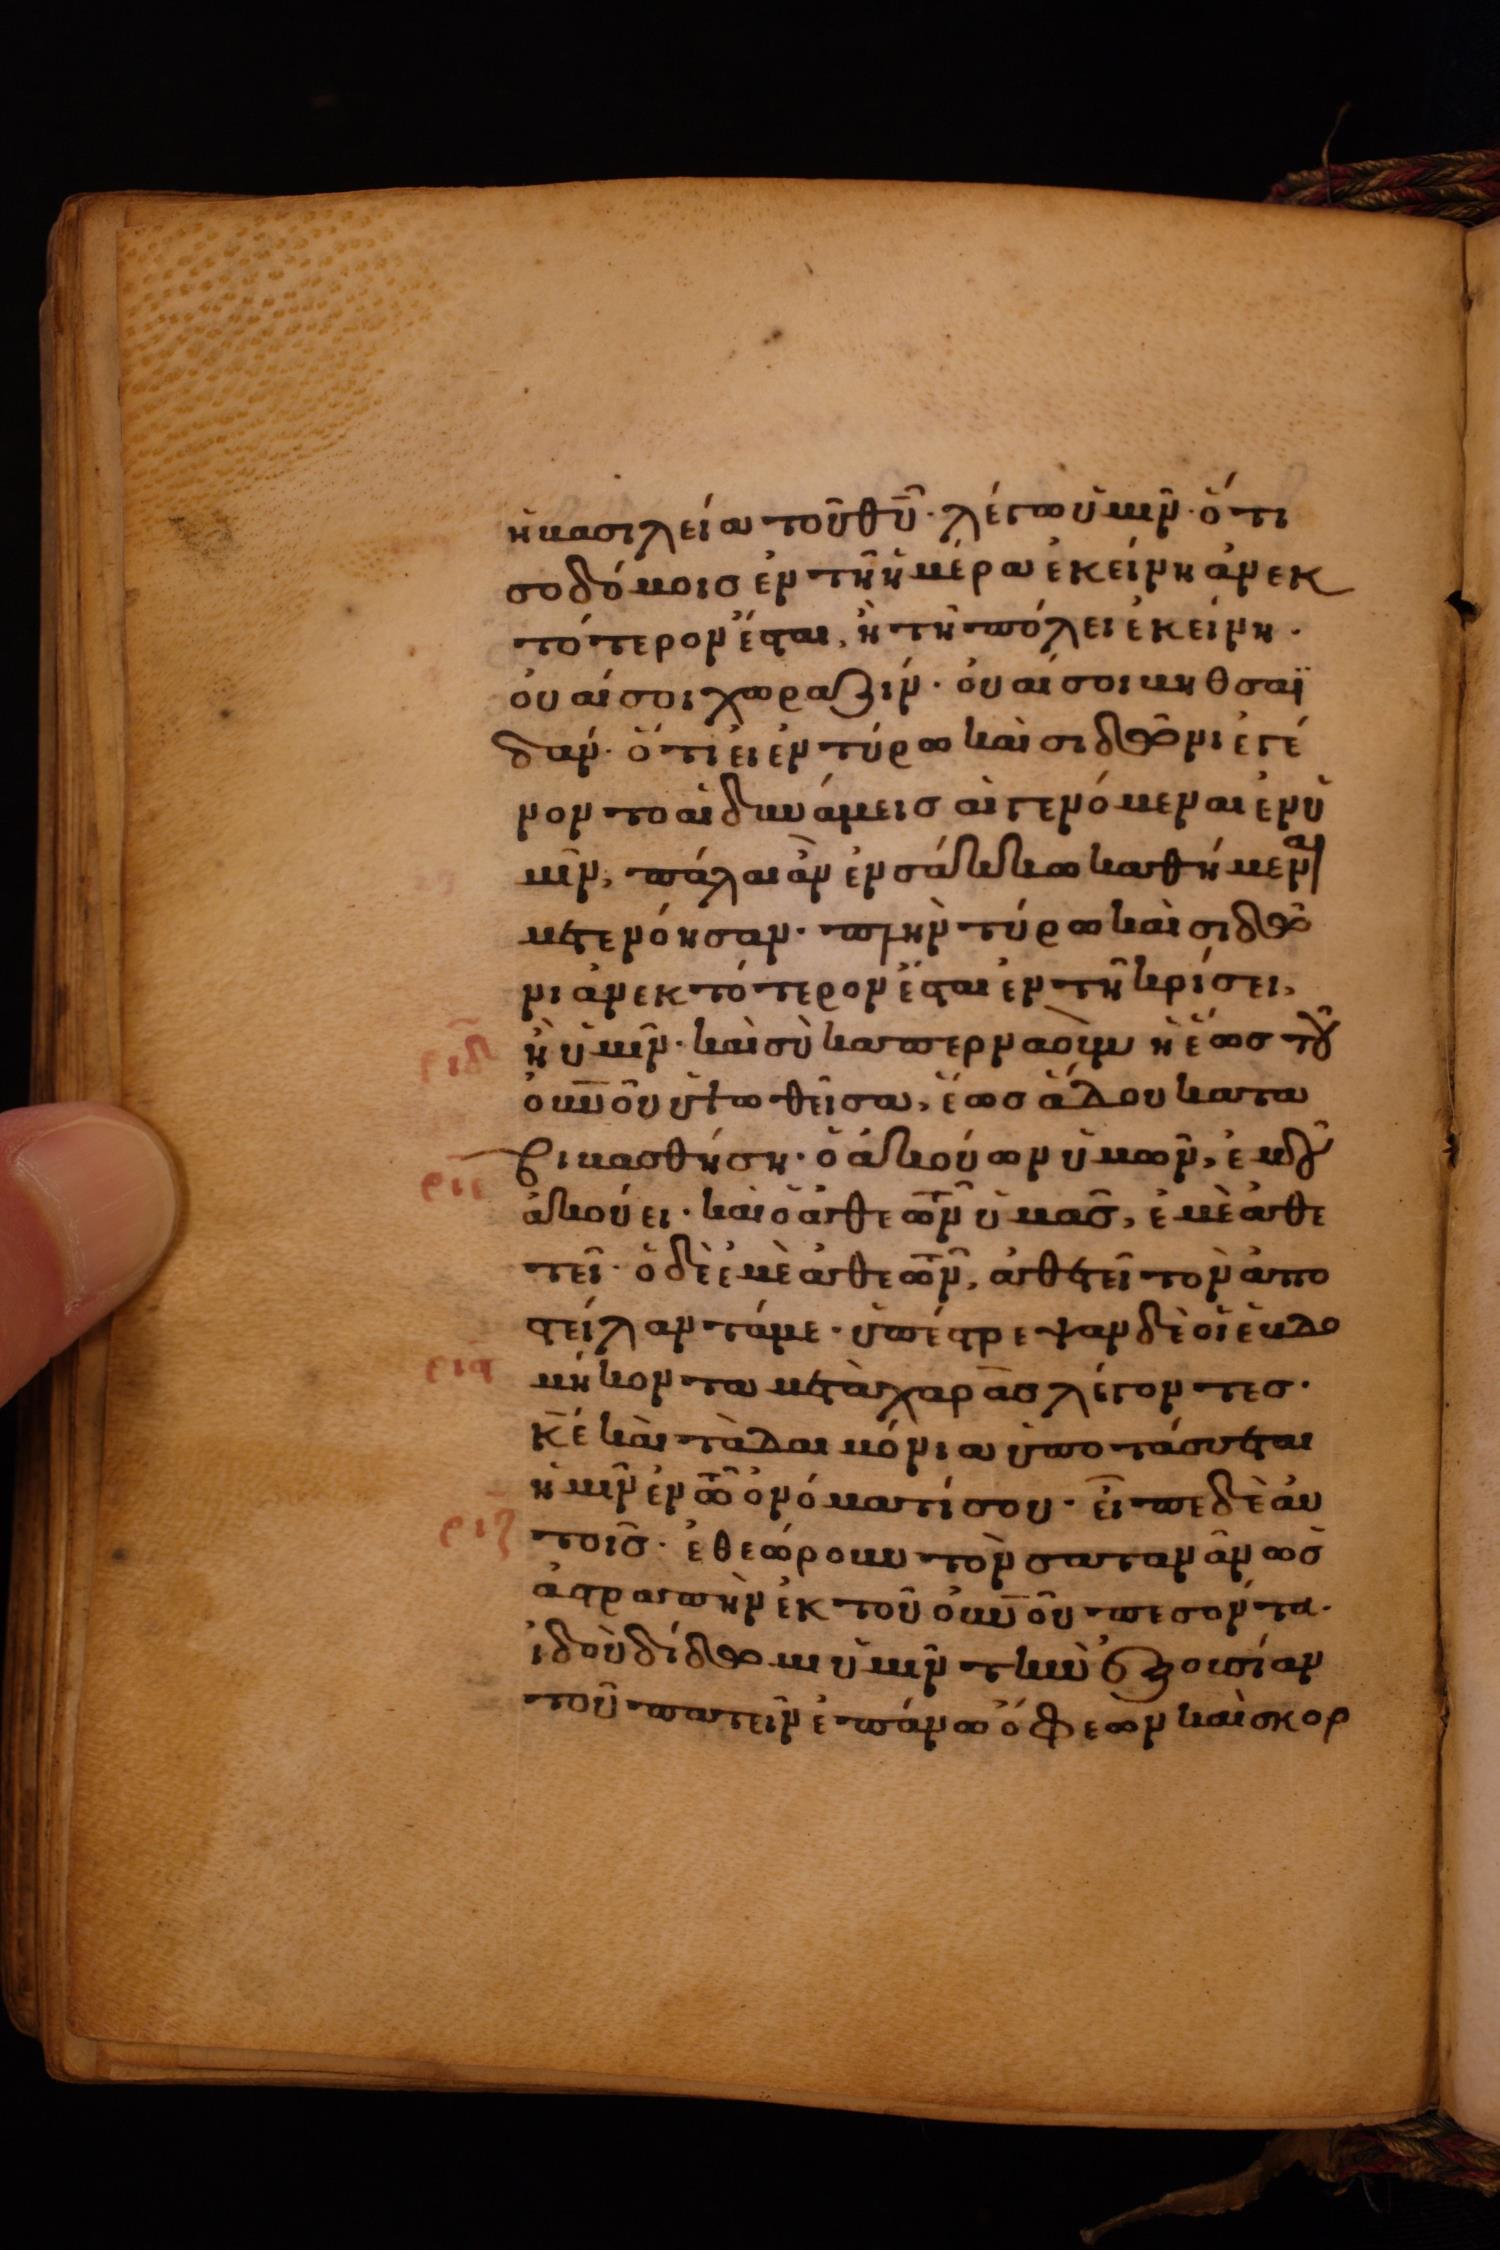 ἡ βασιλεία τοῦ θῦ· λέγω ὑμῖν· ὅτι
σοδόμοις ἐν τῆ ἡμέρα ἐκείνη ἀνεκ
τότερον ἔσται, ἢ τῆ πόλει ἐκείνη·
οὐαί σοι χωραζίν· οὐαί σοι βηθσαϊ
δάν· ὅτι εἰ ἐν τύρω καὶ σιδῶνι ἐγέ
νοντο αἱ δυνάμεις αἱ γενόμεναι ἐν ὑ
μῖν, πάλαι ἂν ἐν σάκκω καθήμεναι
μετενόησαν· πλὴν τύρω καὶ σιδῶ
νι ἀνεκτότερον ἔσται ἐν τῆ κρίσει,
ἢ ὑμῖν· καὶ σὺ καπερναοὺμ ἡ ἕως τοῦ
ριδ
οὐνοῦ ὑψωθεῖσα, ἕως ἅδου κατα
βιβασθήση· ὁ ἀκούων ὑμῶν, ἐμοῦ
ριε
ἀκούει· καὶ ὁ ἀθετῶν ὑμᾶς, ἐμὲ ἀθε
τεῖ· ὁ δὲ ἐμὲ ἀθετῶν, ἀθετεῖ τὸν ἀπο
στείλαντά με· ὑπέστρεψαν δὲ οἱ ἑβδο
μήκοντα μετὰ χαρᾶς λέγοντες·
ριϛ
κέ καὶ τὰ δαιμόνια ὑποτάσσεται
ἡμῖν ἐν τῶ ὀνόματί σου· εἶπε δὲ αὐ
τοῖς· ἐθεώρουν τὸν σατανᾶν ὡς
ριζ
ἀστραπὴν ἐκ τοῦ οὐνοῦ πεσόντα·
ἰδοὺ δίδωμι ὑμῖν τὴν ἐξουσίαν
τοῦ πατεῖν ἐπάνω ὄφεων καὶ σκορ